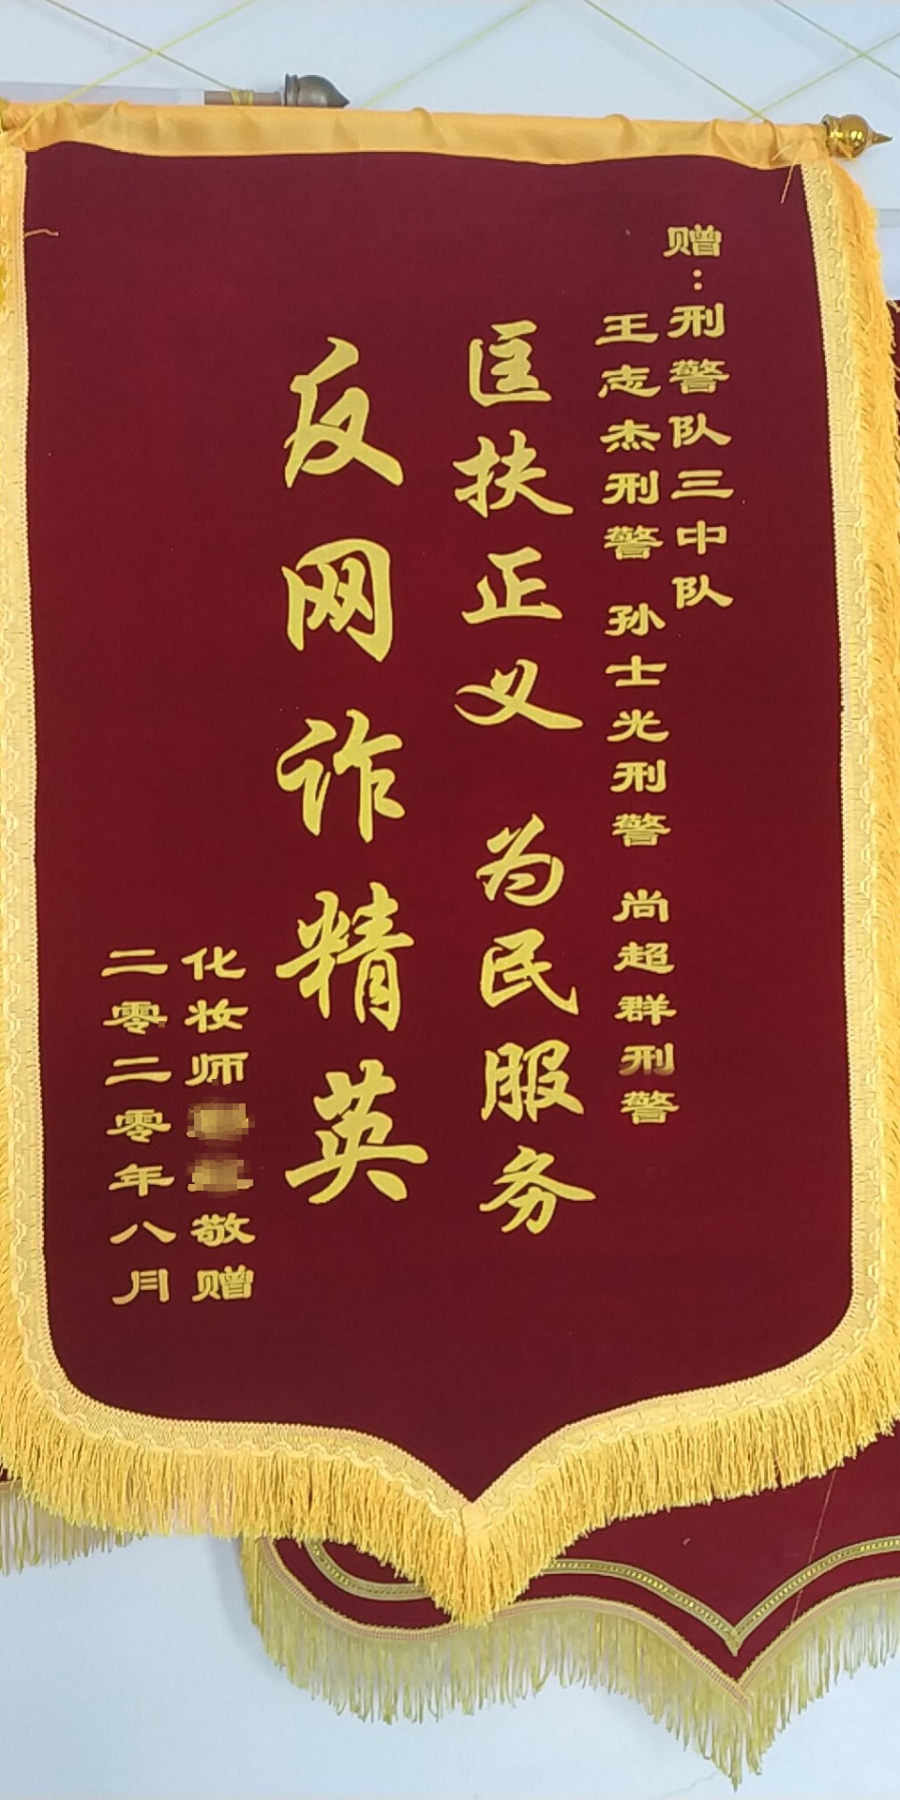 赠：刑警队三中队
王志杰刑警 孙士光刑警 尚超群刑警
匡扶正义 为民服务
反网诈精英
化妆师 敬赠
二零二零年八月